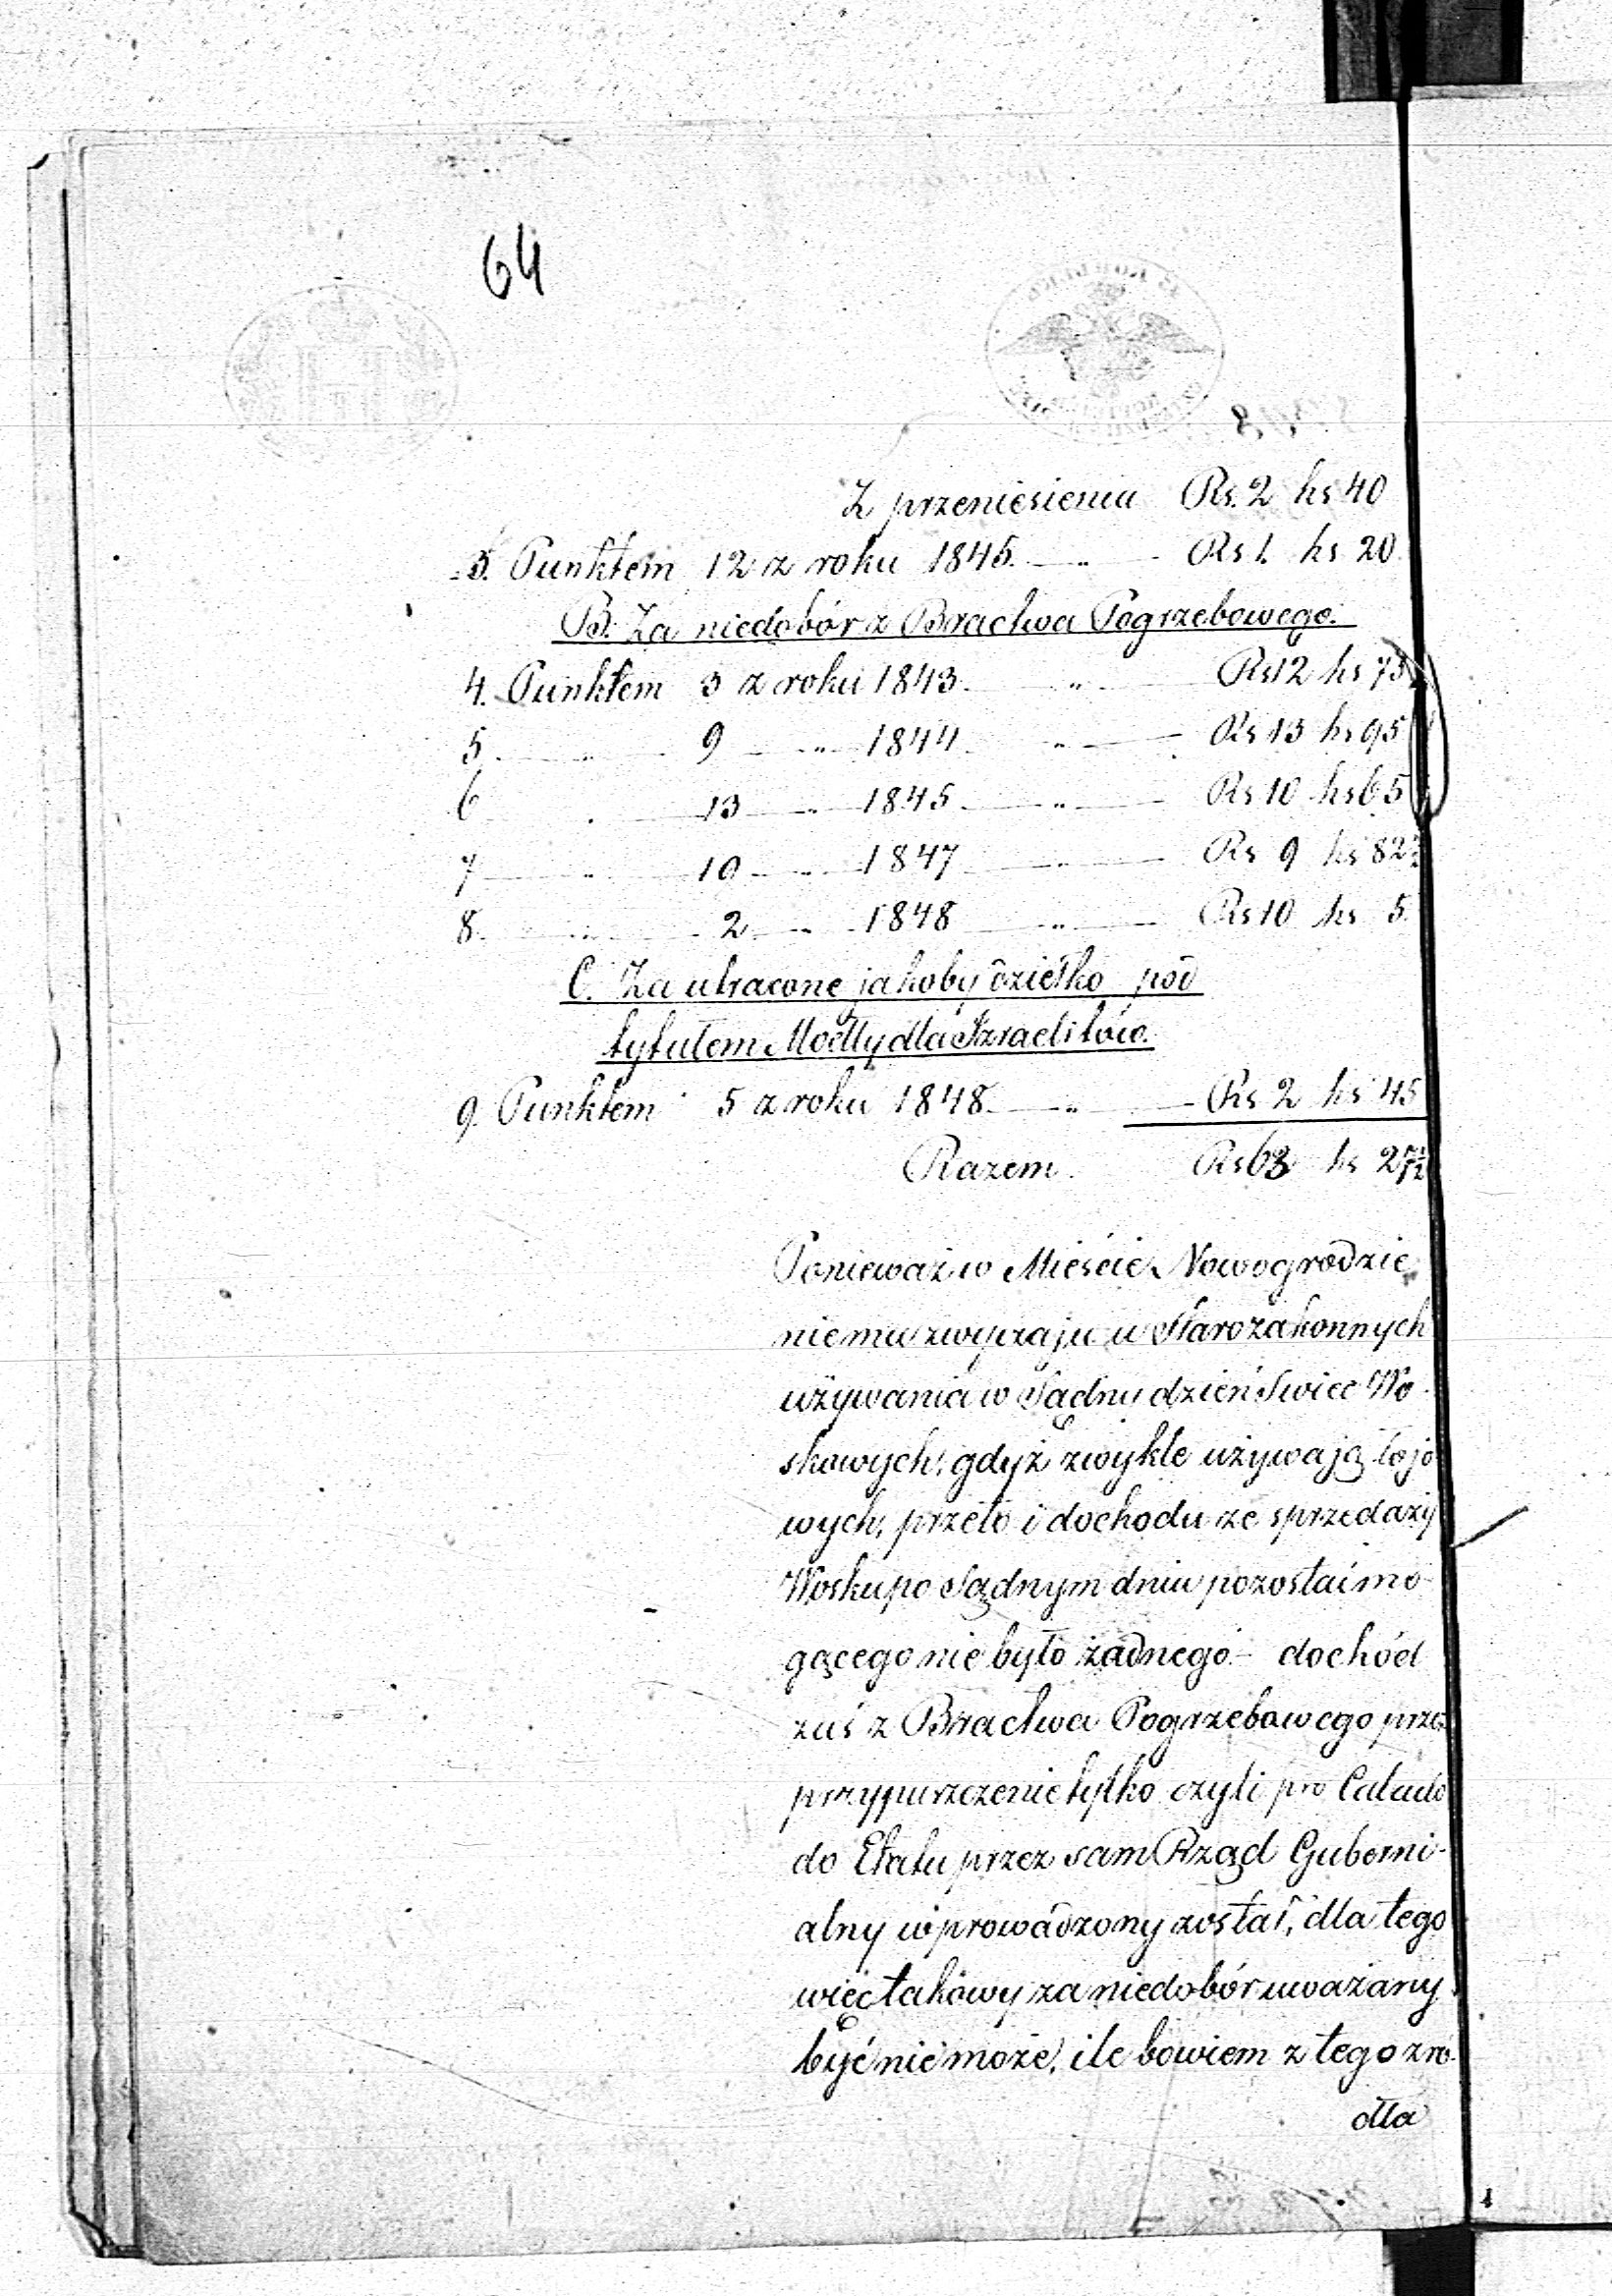 64
Z przeniesienia Rs. 2 ks 40
3. Punktem 12 z roku 1845. — „ — Rs 1. ks 20.
B. Za niedobór z Bractwa Pogrzebowego.
4. Punktem 3 z roku 1843. — „ — Rs 12 ks 73
5. — „ — 9 — „ — 1844 — „ — Rs 13 ks 95
6 „ — 13 — „ — 1845 — „ — Rs 10 ks 65
7 — „ — 10 — „ — 1847 — „ — Rs 9 ks 82½
8. — „ — 2 — „ — 1848 — „ — Rs 10 ks 5.
C. Za utracone jakoby dziełko pod
tytułem Modły dla Izraelitów.
9. Punktem 5 z roku 1848. — „ — Rs 2 ks 45
Razem. Rs 63 ks 27½
Ponieważ w Mieście Nowogrodzie
niema zwyczaju u Starozakonnych
używania w Sądny dzień Swiec Wo-
skowych, gdyż zwykle używają łojo
wych, przeto i dochodu ze sprzedaży
Wosku po Sądnym dniu pozostać mo-
gącego nie było żadnego – dochód
zaś z Bractwa Pogrzebowego przez
przypuszczenie tylko czyli pro Calculo
do Etatu przez sam Rząd Guberni-
alny wprowadzony został, dla tego
więc takowy za niedobór uważany
być nie może, ile bowiem z tego zró-
dła